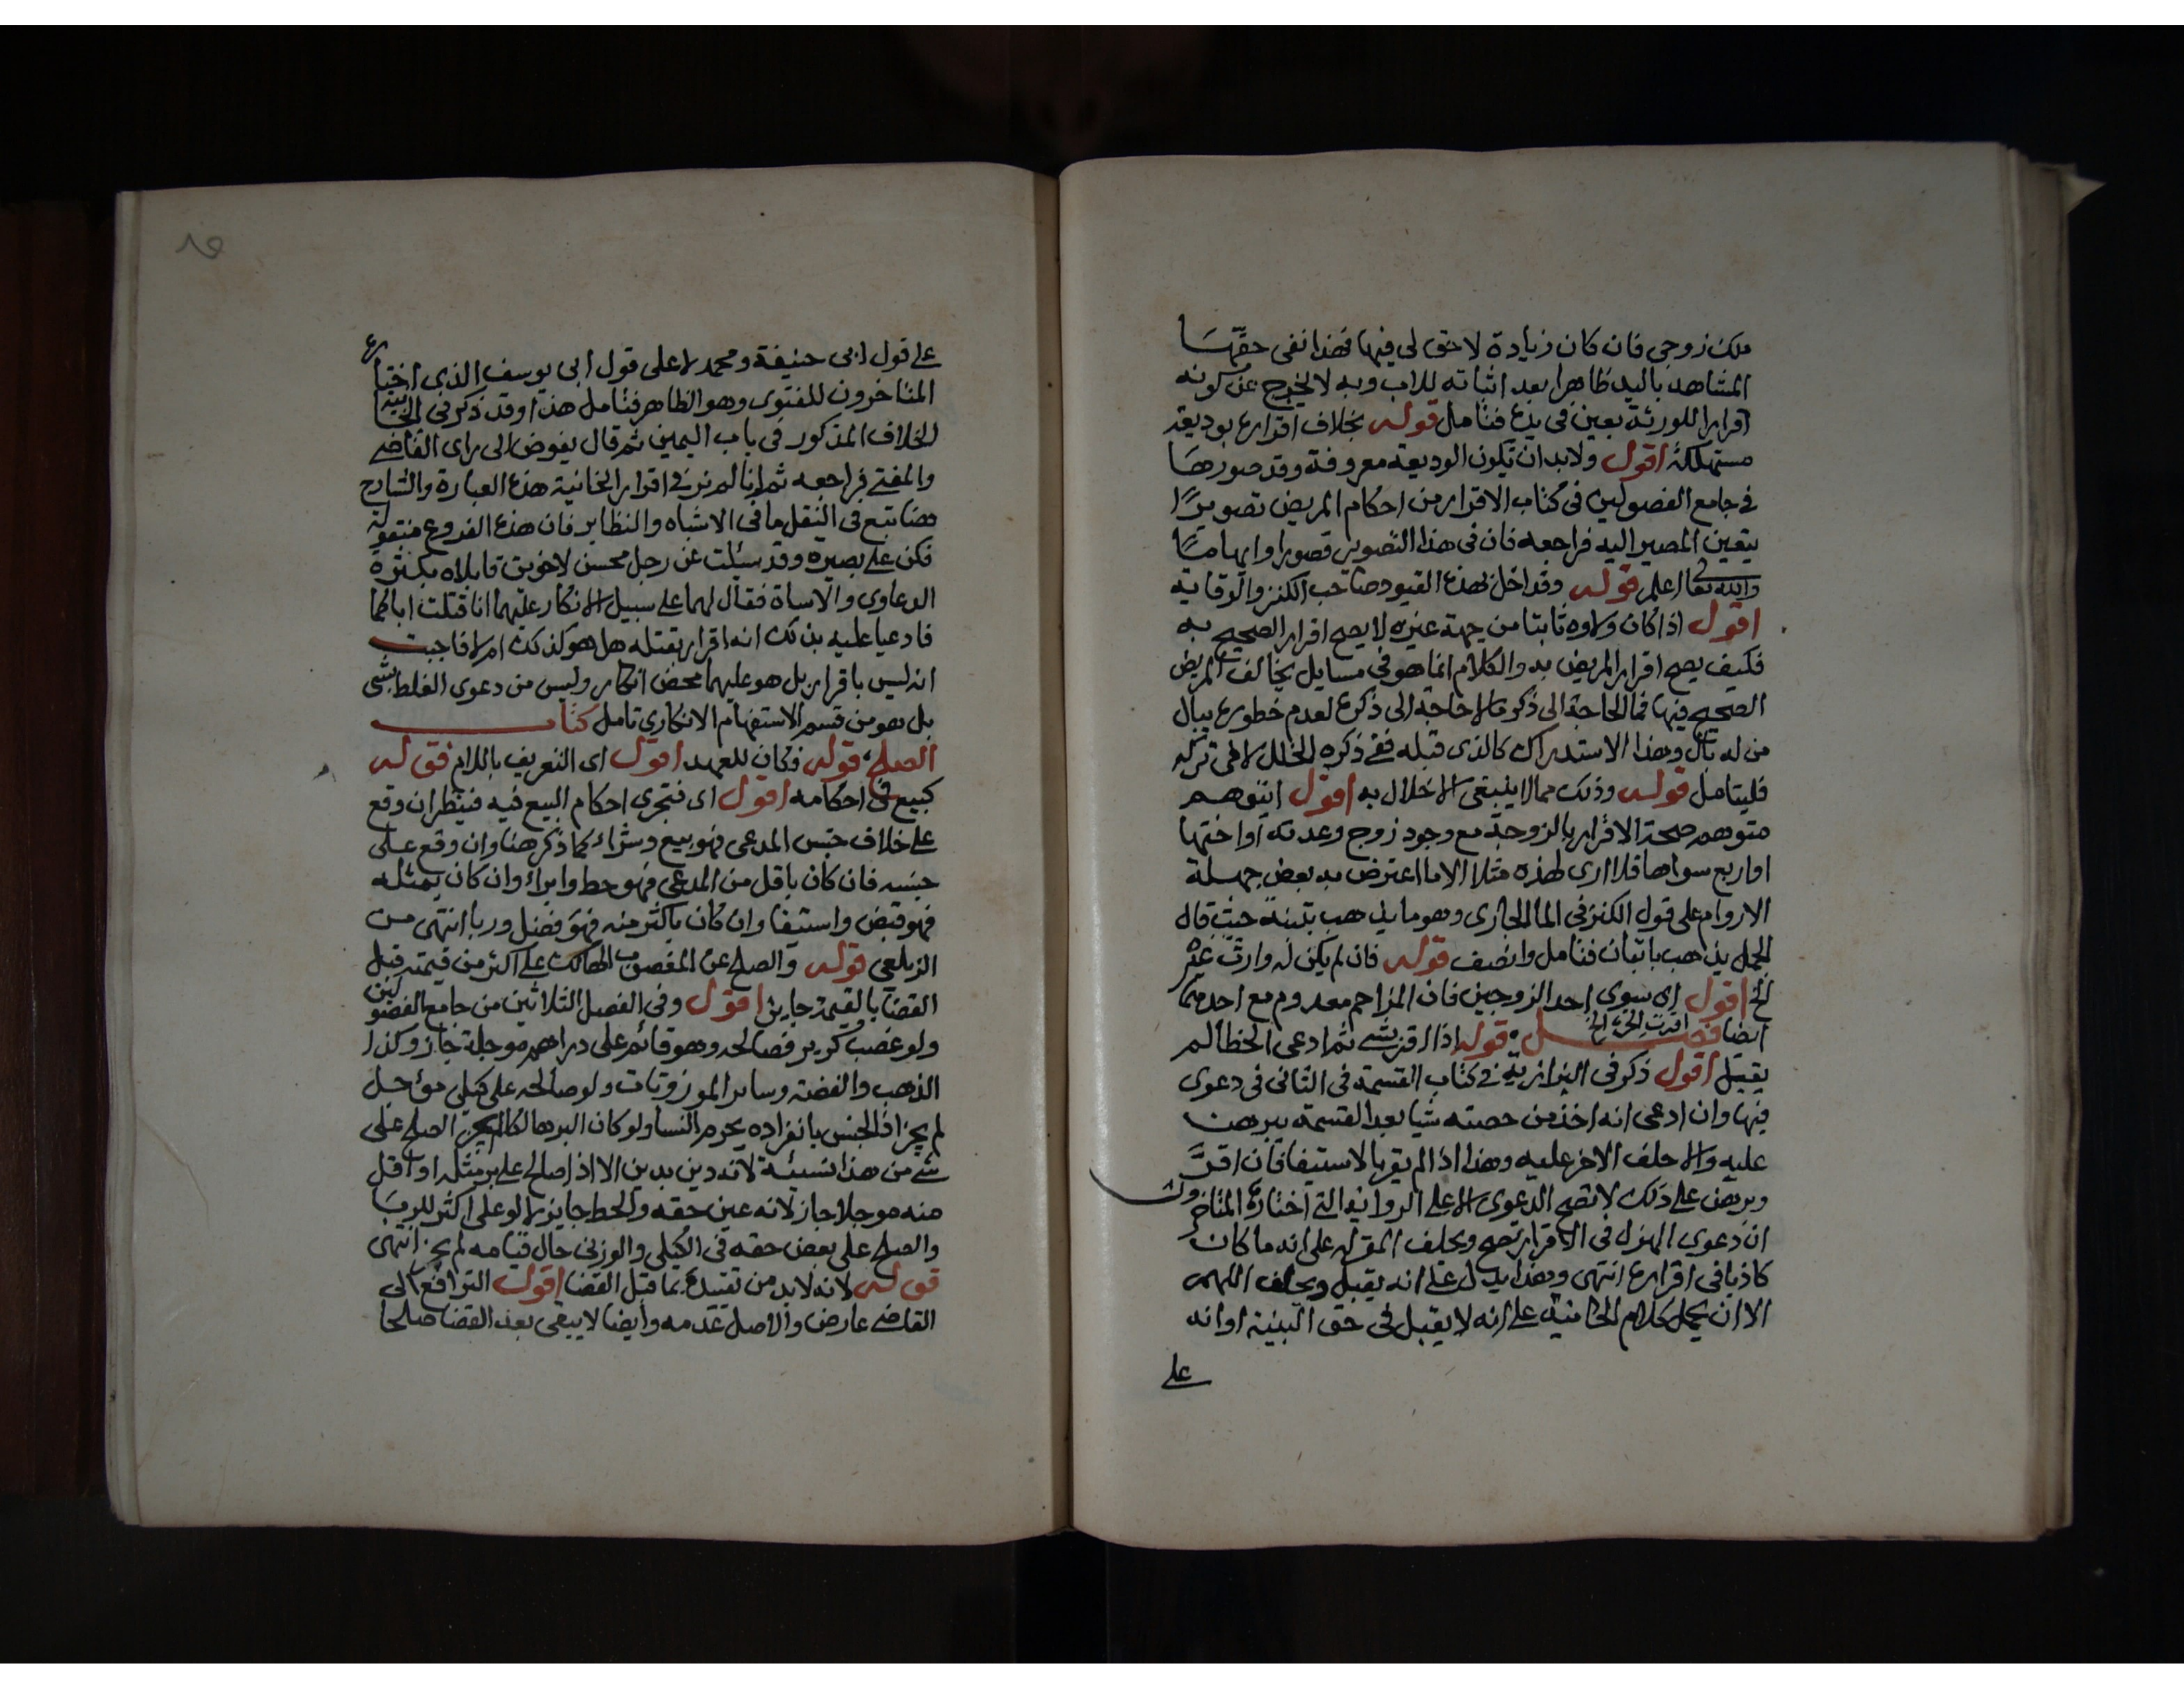 ملك زوجي فان كان زيادة لا حق لي فيها فهذا نفى حقها
المشاهد باليد ظاهرا بعد اثباته للاب وبه لا يخرج عن كونه
اقرارا للورثة بعين في يده فتامل قوله بخلاف اقراره بوديعة
مستهلكة اقول ولابد ان تكون الوديعة معروفة وقد صورها
في جامع الفصولين في كتاب الاقرار من احكام المريض تصويرا
يتعين المصير اليه فراجعه فان في هذا التصوير قصورا وايهاما
والله تعالى اعلم قوله وقد اخل بهذه القيود صاحب الكنز والوقاية
اقول اذا كان ولاوه ثابتا من جهة غيره لا يصح اقرار الصحيح به
فكيف يصح اقرار المريض به والكلام انما هو في مسايل يخالف المريض
الصحيح فيها فما الحاجة الى ذكر مالا حاجة الى ذكره لعدم خطوره ببال
من له بال وهذا الاستدراك كالذي قبله ففي ذكره الخلل لا في تركه
فليتامل قوله وذلك مما لا ينبغي الاخلال به اقول ايتوهم
متوهم صحة الاقرار بالزوجة مع وجود زوج وعدته او اختها
او اربع سواها فلا ارى لهذه مثلا الا ما اعترض به بعض جهلة
الاروام على قول الكنز في الما الجاري وهو ما يذهب بتبنة حيث قال
الجمل يذهب باتبان فتامل وانصف قوله فان لم يكن له وارث غيره
الخ اقول اى سوى احد الزوجين فان المزاحم معدوم مع احدهما
ايضا فصل اقرت الحرة الخ قوله اذا اقر بشي ثم ادعى الخطا لم
يقبل اقول ذكر في البزازية في كتاب القسمة في الثاني في دعوى
فيها وان ادعى انه اخذ من حصته شيا بعد القسمة يبرهن
عليه والا حلف الاخر عليه وهذا اذا لم يقر بالاستيفا فان اقر
وبرهن على ذلك لا تصح الدعوى الا على الرواية التي اختارها المتاخرون
ان دعوى الهزل في الاقرار تصح ويحلف المقر له على انه ما كان
كاذبا في اقراره انتهى وهذا يدل على انه يقبل ويحلف اللهم
الا ان يحمل كلام الخانية على انه لا يقبل في حق البينة او انه
على
على قول ابي حنيفة ومحمد لا على قول ابي يوسف الذي اختاره
المتاخرون للفتوى وهو الظاهر فتامل هذا وقد ذكر في الخانية
الخلاف المذكور في باب اليمين ثم قال يفوض الى راى القاضي
والمفتي فراجعه ثم انا لم نر في اقرار الخانية هذه العبارة والشارح
هنا تبع في النقل ما في الاشباه والنظاير فان هذه الفروع منقولة
فكن على بصيره وقد سئلت عن رجل محسن لاخوين قابلاه بكثرة
الدعاوى والاساة فقال لهما على سبيل الانكار عليهما انا قتلت اباكما
فادعيا عليه بذلك انه اقرار بقتله هل هو كذلك ام لا فاجبت
انه ليس باقرار بل هو عليهما محض انكار وليس من دعوى الغلط بشى
بل هو من قسم الاستفهام الانكاري تامل كتاب
الصلح قوله فكان للعهد اقول اى التعريف باللام قوله
كبيع في احكامه اقول اى فتجرى احكام البيع فيه فينظر ان وقع
على خلاف جنس المدعى فهو بيع وشراء كما ذكر هنا وان وقع على
جنسه فان كان باقل من المدعى فهو حط وابراء وان كان بمثله
فهو قبض واستيفا وان كان باكثر منه فهو فضل وربا انتهى من
الزيلعي قوله والصلح عن المغصوب الهالك على اكثر من قيمته قبل
القضا بالقيمة جايز اقول وفي الفصل الثلاثين من جامع الفصولين
ولو غصب كر بر فصالحه وهو قائم على دراهم موجلة جاز وكذا
الذهب والفضة وساير الموزونات ولو صالحه على كيلي مؤجل
لم يجز اذ الجنس بانفراده يحرم النسا ولو كان البر هالكا لم يجز الصلح على
شي من هذا نسيئة لانه دين بدين الا اذا صالح على بر مثله او اقل
منه موجلا جاز لانه عين حقه والحط جايز لا لو على اكثر للربا
والصلح على بعض حقه في الكيلي والوزني حال قيامه لم يجز انتهى
قوله لانه لابد من تقييده بما قبل القضا اقول الترافع الى
القاضي عارض والاصل عدمه وايضا لا يبقى بعد القضا صلحا